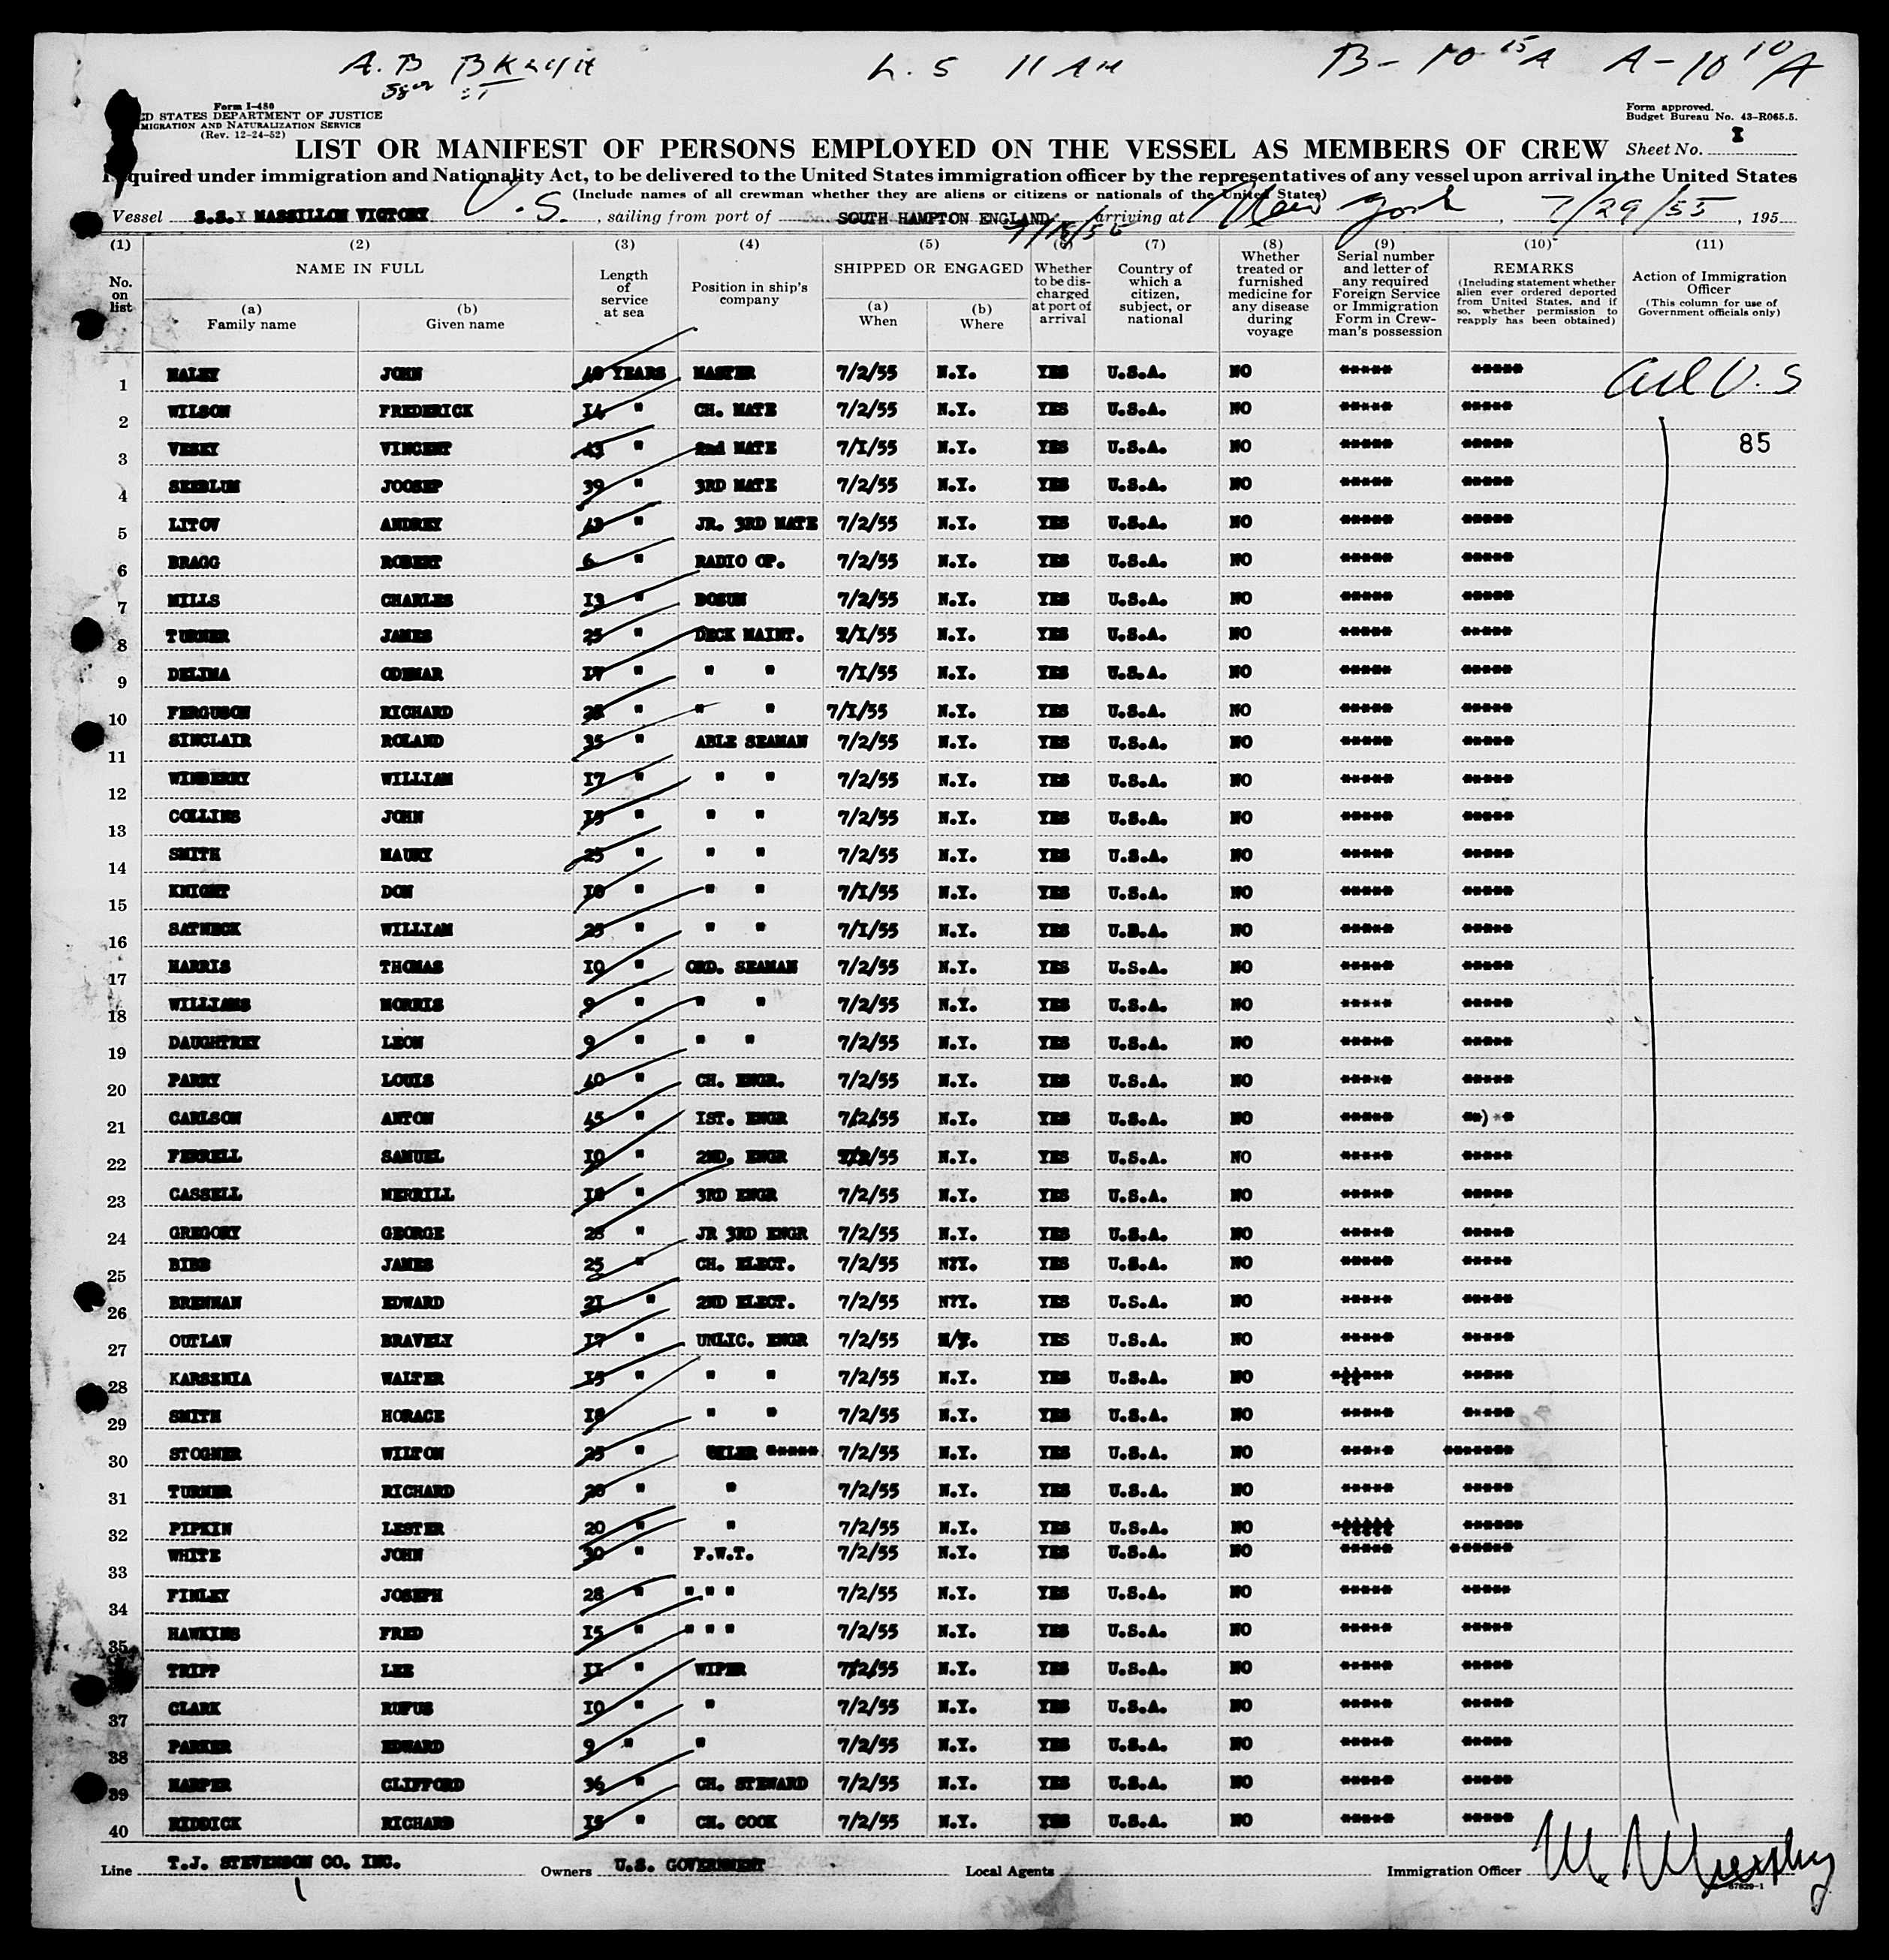 L. S 11 AM
B- 10 15 A A- 10 10 A
Form I-480
ED STATES DEPARTMENT OF JUSTICE
MIGRATION AND NATURALIZATION SERVICE
(Rev. 12-24-52)
Form approved.
Budget Bureau No. 43-R065.5.
LIST OR MANIFEST OF PERSONS EMPLOYED ON THE VESSEL AS MEMBERS OF CREW Sheet No. I
quired under immigration and Nationality Act, to be delivered to the United States immigration officer by the representatives of any vessel upon arrival in the United States
(Include names of all crewman whether they are aliens or citizens or nationals of the United States)
Vessel S.S. MASSILLON VICTORY U.S. , sailing from port of SOUTH HAMPTON ENGLAND, arriving at New York , 7/29/55 , 195
(1) (2) (3) (4) (5) (6) (7) (8) (9) (10) (11)
No. on list NAME IN FULL (a) Family name (b) Given name Length of service at sea Position in ship's company SHIPPED OR ENGAGED (a) When (b) Where Whether to be discharged at port of arrival Country of which a citizen, subject, or national Whether treated or furnished medicine for any disease during voyage Serial number and letter of any required Foreign Service or Immigration Form in Crewman's possession REMARKS (Including statement whether alien ever ordered deported from United States, and if so, whether permission to reapply has been obtained) Action of Immigration Officer (This column for use of Government officials only)
1 HALEY JOHN 40 YEARS MASTER 7/2/55 N.Y. YES U.S.A. NO ***** ***** All U.S
2 WILSON FREDERICK 14 " CH. MATE 7/2/55 N.Y. YES U.S.A. NO ***** *****
3 VESEY VINCENT 43 " 2nd MATE 7/I/55 N.Y. YES U.S.A. NO ***** ***** 85
4 SEEBLUM JOOSEP 39 " 3RD MATE 7/2/55 N.Y. YES U.S.A. NO ***** *****
5 LITOV ANDREY 43 " JR. 3RD MATE 7/2/55 N.Y. YES U.S.A. NO ***** *****
6 BRAGG ROBERT 6 " RADIO OP. 7/2/55 N.Y. YES U.S.A. NO ***** *****
7 MILLS CHARLES I3 " BOSUN 7/2/55 N.Y. YES U.S.A. NO ***** *****
8 TURNER JAMES 25 " DECK MAINT. 7/I/55 N.Y. YES U.S.A. NO ***** *****
9 DELIMA ODEMAR I7 " " " 7/I/55 N.Y. YES U.S.A. NO ***** *****
10 FERGUSON RICHARD 28 " " " 7/I/55 N.Y. YES U.S.A. NO ***** *****
11 SINCLAIR ROLAND 35 " ABLE SEAMAN 7/2/55 N.Y. YES U.S.A. NO ***** *****
12 WINBERRY WILLIAM I7 " " " 7/2/55 N.Y. YES U.S.A. NO ***** *****
13 COLLINS JOHN I5 " " " 7/2/55 N.Y. YES U.S.A. NO ***** *****
14 SMITH MAURY 25 " " " 7/2/55 N.Y. YES U.S.A. NO ***** *****
15 KNIGHT DON I0 " " " 7/I/55 N.Y. YES U.S.A. NO ***** *****
16 SATNECK WILLIAM 25 " " " 7/I/55 N.Y. YES U.S.A. NO ***** *****
17 HARRIS THOMAS I0 " ORD. SEAMAN 7/2/55 N.Y. YES U.S.A. NO ***** *****
18 WILLIAMS MORRIS 9 " " " 7/2/55 N.Y. YES U.S.A. NO ***** *****
19 DAUGHTREY LEON 9 " " " 7/2/55 N.Y. YES U.S.A. NO ***** *****
20 PARRY LOUIS 40 " CH. ENGR. 7/2/55 N.Y. YES U.S.A. NO ***** *****
21 CARLSON ANTON 45 " IST. ENGR 7/2/55 N.Y. YES U.S.A. NO ***** **) **
22 FERRELL SAMUEL I0 " 2ND. ENGR 7/2/55 N.Y. YES U.S.A. NO ***** *****
23 CASSELL MERRILL I8 " 3RD ENGR 7/2/55 N.Y. YES U.S.A. NO ***** *****
24 GREGORY GEORGE 28 " JR 3RD ENGR 7/2/55 N.Y. YES U.S.A. NO ***** *****
25 BIBB JAMES 25 " CH. ELECT. 7/2/55 N?Y. YES U.S.A. NO ***** *****
26 BRENNAN EDWARD 21 " 2ND ELECT. 7/2/55 N?Y. YES U.S.A. NO ***** *****
27 OUTLAW BRAVELY I7 " UNLIC. ENGR 7/2/55 N/Y. YES U.S.A. NO ***** *****
28 KARSZNIA WALTER I5 " " " 7/2/55 N.Y. YES U.S.A. NO ****** *****
29 SMITH HORACE I8 " " " 7/2/55 N.Y. YES U.S.A. NO ***** *****
30 STOGNER WILTON 25 " OILER ***** 7/2/55 N.Y. YES U.S.A. NO ***** *******
31 TURNER RICHARD 20 " " 7/2/55 N.Y. YES U.S.A. NO ***** *****
32 PIPKIN LESTER 20 " " 7/2/55 N.Y. YES U.S.A. NO ****** ******
33 WHITE JOHN 30 " F.W.T. 7/2/55 N.Y. YES U.S.A. NO ***** ******
34 FINLEY JOSEPH 28 " " " " 7/2/55 N.Y. YES U.S.A. NO ***** *****
35 HAWKINS FRED I5 " " " " 7/2/55 N.Y. YES U.S.A. NO ***** *****
TRIPP LEE II " WIPER 7/2/55 N.Y. YES U.S.A. NO ***** *****
37 CLARK RUFUS I0 " " 7/2/55 N.Y. YES U.S.A. NO ***** *****
38 PARKER EDWARD 9 " " 7/2/55 N.Y. YES U.S.A. NO ***** *****
39 HARPER CLIFFORD 36 " CH. STEWARD 7/2/55 N.Y. YES U.S.A. NO ***** *****
40 RIDDICK RICHARD I5 " CH. COOK 7/2/55 N.Y. YES U.S.A. NO ***** *****
Line T.J. STEVENSON CO. INC. Owners U.S. GOVERNMENT Local Agents Immigration Officer M. Murphy